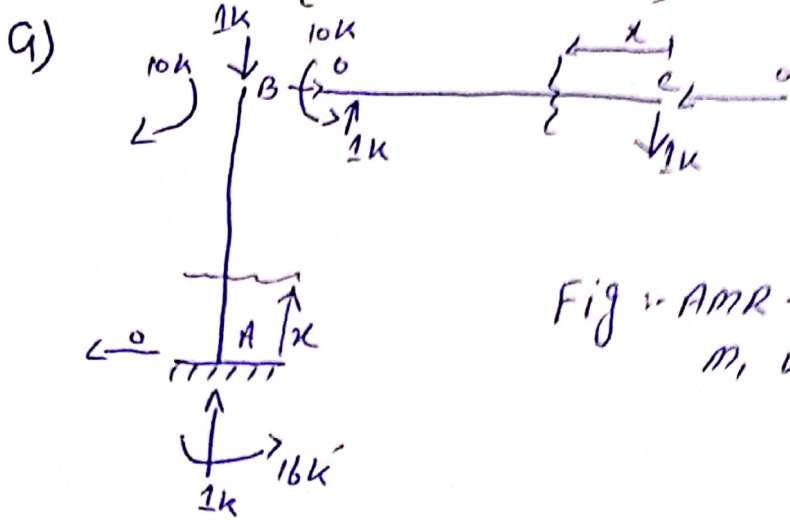 G)
1K
10K
B
10K
0
1K
x
C
1K
0
A
x
16K'
1K
Fig :- AMR
m,